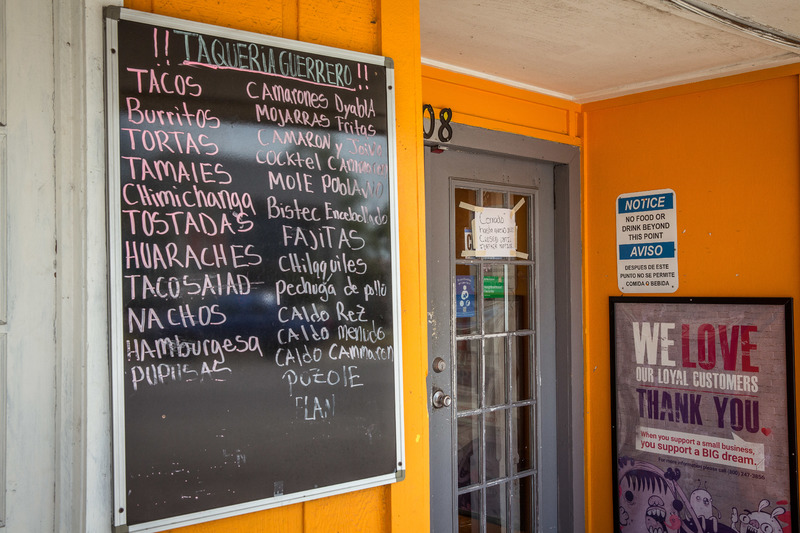 !! TAQUERIA GUERRERO !!
TACOS
Burritos
TORTAS
TAMALES
CHIMICHANGA
TOSTADAS
HUARACHES
TACO SALAD
NACHOS
HAMburgesa
PUPUSAS
CAMARONES DyablA
MOJARRAS Fritas
CAMARON y
COCKTEL
MOLE PObLANO
Bistec Encebollado
FAJITAS
CHilAquiles
pechuga de pollo
CAlDO REZ
CAlDO menudo
CAlDO CAMMARON
POZOlE
FLAN
08
Cerrado
NOTICE
NO FOOD OR
DRINK BEYOND
THIS POINT
AVISO
DESPUES DE ESTE
PUNTO NO SE PERMITE
COMIDA O BEBIDA
WE LOVE
OUR LOYAL CUSTOMERS
THANK YOU.
When you support a small business,
you support a BIG dream.
For more information please call